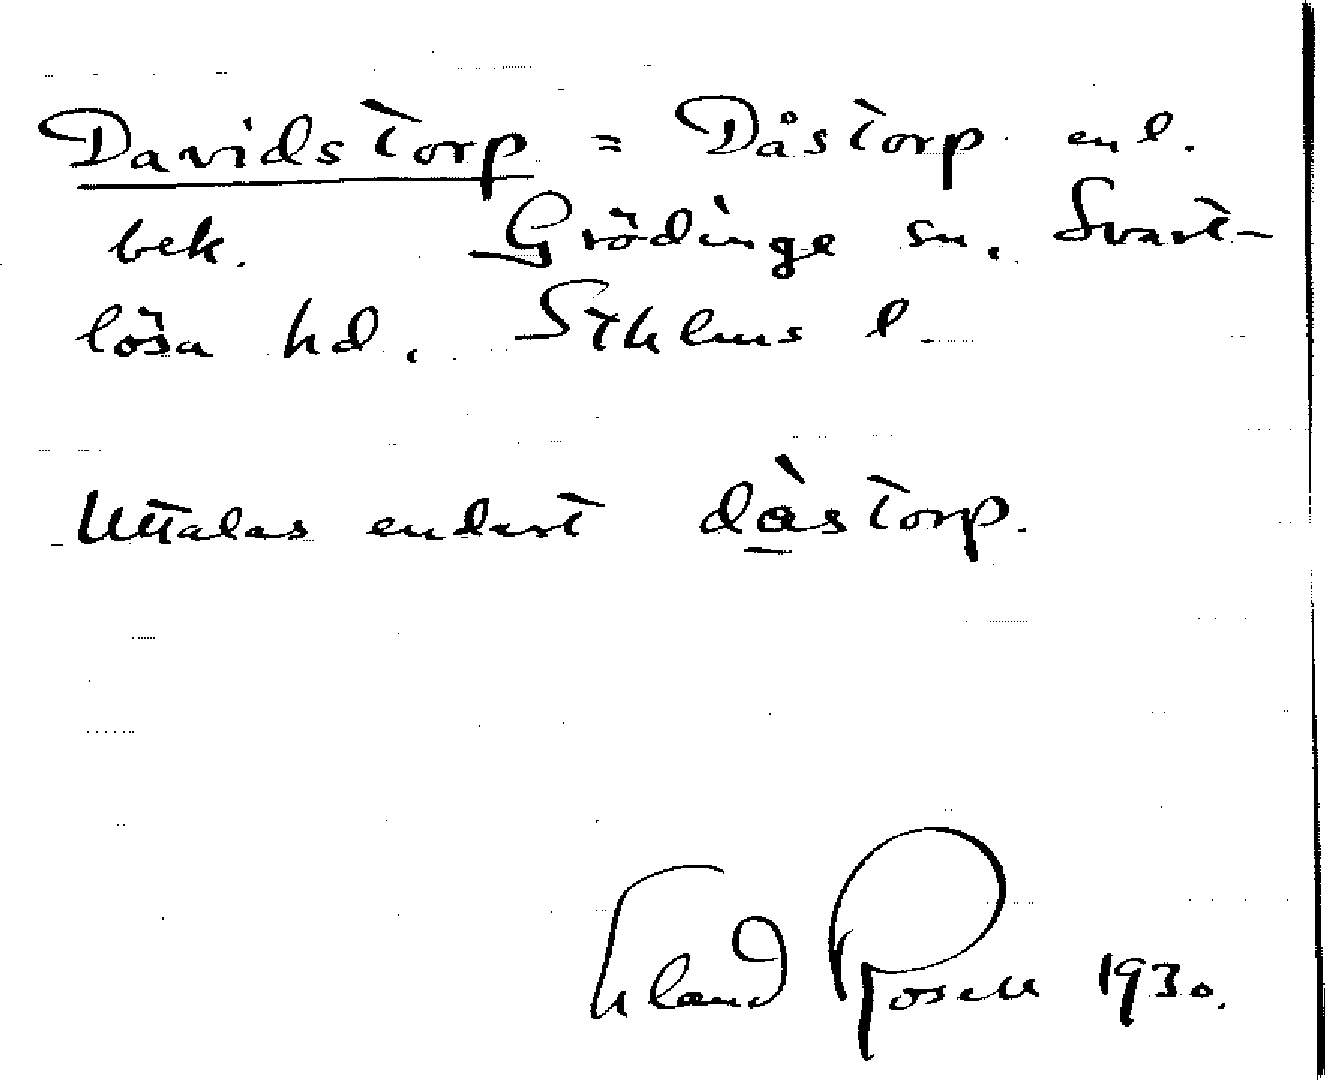 Davidstorp = Dåstorp enl.
bek. Grödinge sn. Svart-
lösa hd. Sthlms l.
Uttalas endast dàstorp.
Erland Rosell 1930.